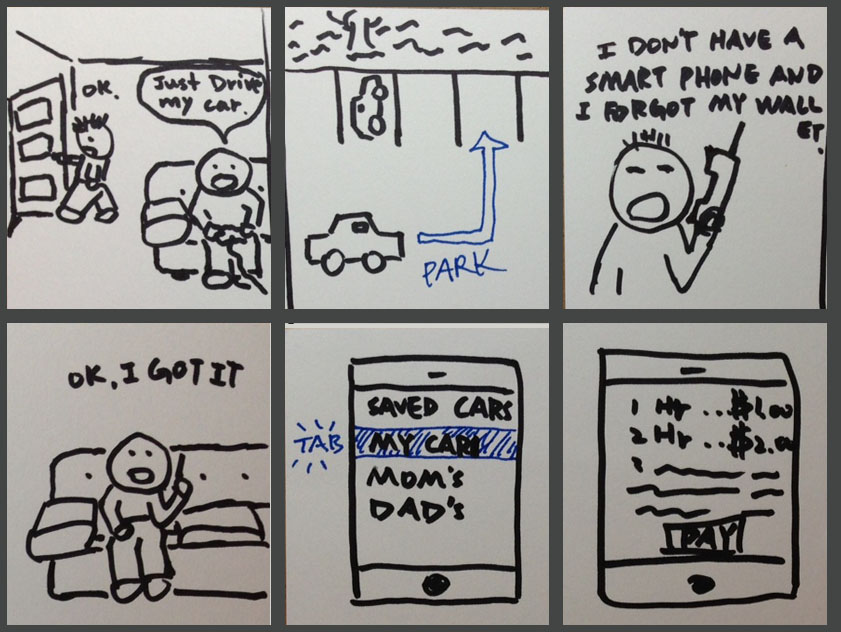 OK.
Just Drive
my car.
PARK
I DON'T HAVE A
SMART PHONE AND
I FORGOT MY WALL
ET.
OK, I GOT IT
SAVED CARS
TAB
MY CAR
MOM's
DAD's
1 Hr ... $1.00
2 Hr ... $2.00
3
PAY